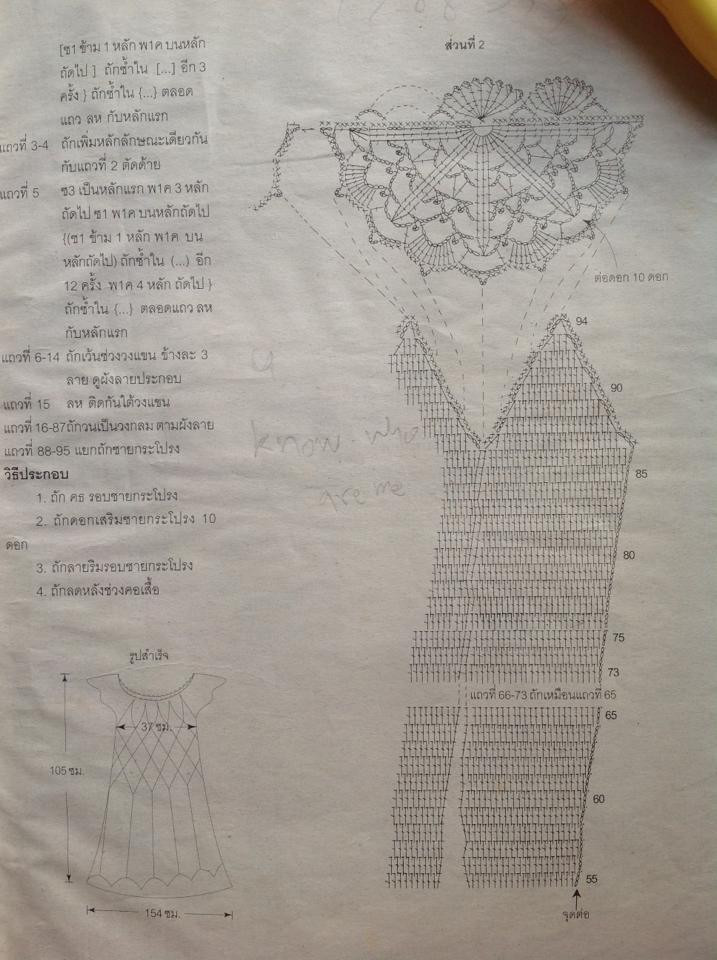 [ซ1 ข้าม 1 หลัก พ1ค บนหลัก
ถัดไป ] ถักซ้ำใน [...] อีก 3
ครั้ง } ถักซ้ำใน {...} ตลอด
แถว ลห กับหลักแรก
แถวที่ 3-4 ถักเพิ่มหลักลักษณะเดียวกัน
กับแถวที่ 2 ตัดด้าย
แถวที่ 5 ซ3 เป็นหลักแรก พ1ค 3 หลัก
ถัดไป ซ1 พ1ค บนหลักถัดไป
{(ซ1 ข้าม 1 หลัก พ1ค บน
หลักถัดไป) ถักซ้ำใน (...) อีก
12 ครั้ง พ1ค 4 หลัก ถัดไป }
ถักซ้ำใน {...} ตลอดแถว ลห
กับหลักแรก
แถวที่ 6-14 ถักเว้นช่วงวงแขน ข้างละ 3
ลาย ดูผังลายประกอบ
แถวที่ 15 ลห ติดกันใต้วงแขน
แถวที่ 16-87ถักวนเป็นวงกลม ตามผังลาย
แถวที่ 88-95 แยกถักชายกระโปรง
วิธีประกอบ
1. ถัก คธ รอบชายกระโปรง
2. ถักดอกเสริมชายกระโปรง 10
ดอก
3. ถักลายริมรอบชายกระโปรง
4. ถักลดหลังช่วงคอเสื้อ
รูปสำเร็จ
37 ซม.
105 ซม.
154 ซม.
ส่วนที่ 2
ต่อดอก 10 ดอก
94
90
85
80
75
73
แถวที่ 66-73 ถักเหมือนแถวที่ 65
65
60
55
จุดต่อ
know who
are me